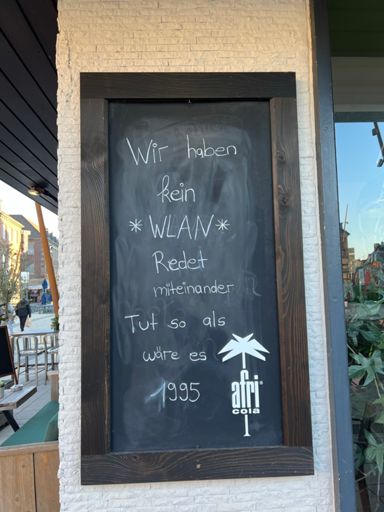 Wir haben
kein
*WLAN*
Redet
miteinander
Tut so als
wäre es
1995
afri
cola